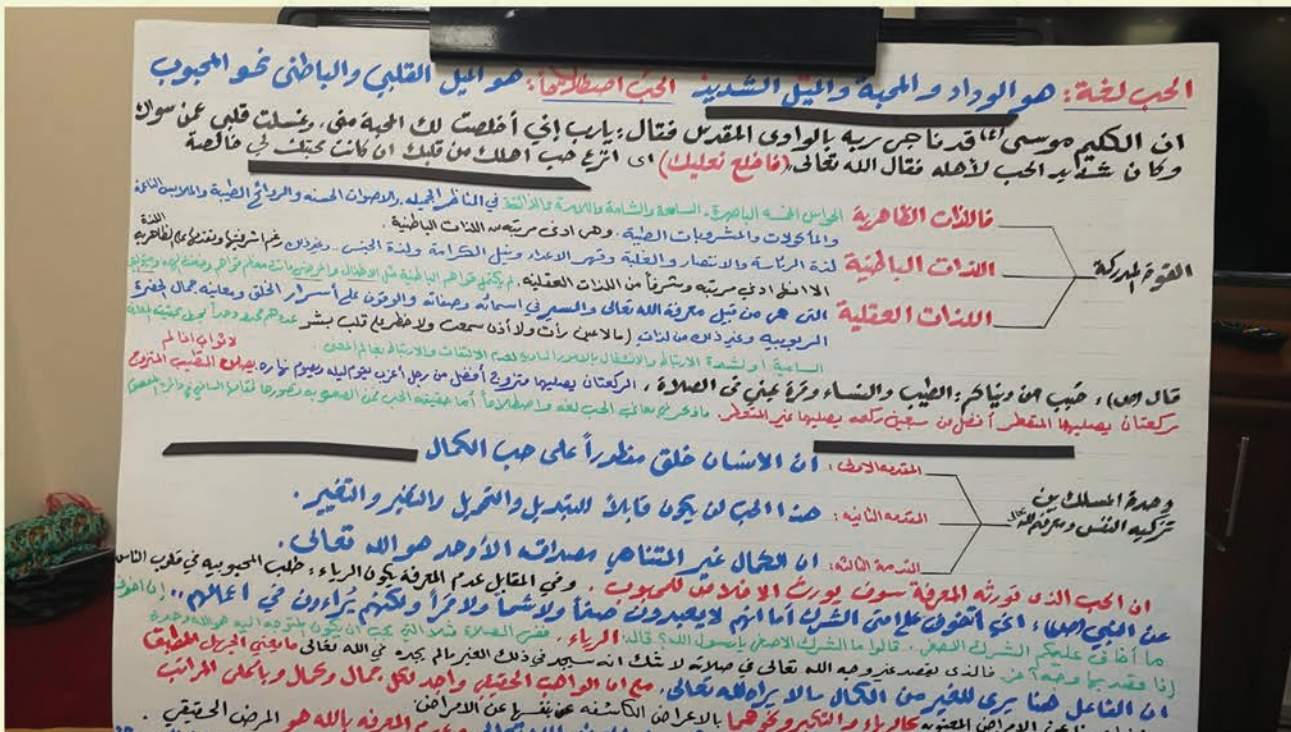 الحب لغة: هو الوداد والمحبة والميل الشديد الحب اصطلاحاً: هو الميل القلبي والباطني نحو المحبوب
ان الكليم موسى (ع) قد ناجى ربه بالوادي المقدس فقال: يارب إني أخلصت لك المحبة مني، وغسلت قلبي عمن سواك
وكان شديد الحب لأهله فقال الله تعالى، (فاخلع نعليك) اى انزع حب اهلك من قلبك ان كانت محبتك لي خالصة
القوة المدركة
فاللذات الظاهرية الحواس الخمسة الباصرة، السامعة والشامة واللامسة والذائقة في المناظر الجميلة والاصوات الحسنه والروائح الطيبة والملابس الناعمة
والمأكولات والمشروبات الطيبة. وهي ادنى مرتبه من اللذات الباطنية.
اللذات الباطنية لذة الرئاسة والانتصار والغلبة وقهر الاعداء ونيل الكرامة ولذة الجنس .. وغير ذلك رغم اشرفيتها وتقدمها على الظاهرية
الا انها ادنى مرتبه وشرفاً من اللذات العقلية.
اللذات العقلية التي هي من قبيل معرفة الله تعالى والسير في اسمائه وصفاته والوقوف على أسرار الخلق ومعاينه جمال الحضرة
الربوبيه وغير ذلك من لذات (مالا عين رأت ولا أذن سمعت ولا خطر على قلب بشر
السامية او لشدة الارتباط والانشغال بالامور المادية لعدم الالتفات والارتباط بعالم المعنى.
قال (ص): حبب من دنياكم: الطيب والنساء وقرة عيني في الصلاة، الركعتان يصليهما متزوج أفضل من رجل أعزب يقوم ليله ويصوم نهاره
ركعتان يصليهما المتعطر أفضل من سبعين ركعه يصليها غير المتعطر. ماذكر من معاني الحب لغة واصطلاحاً أما حقيقة الحب فمن الصعوبه تصورها
وحدة المسلك بين
تزكيه النفس ومعرفة الله تعالى
المقدمه الاولى: ان الانسان خلق مفطوراً على حب الكمال
المقدمه الثانيه: هذا الحب لن يكون قابلاً للتبديل والتحويل والتغير والتغيير.
المقدمة الثالثه: ان الكمال غير المتناهي مصداقه الأوحد هو الله تعالى.
ان الحب الذى تورثه المعرفة سوف يورث الاخلاص للمحبوب. وفي المقابل عدم المعرفة يكون الرياء: طلب المحبوبيه في قلوب الناس
عن النبي (ص): اني أتخوف على امتي الشرك أما انهم لا يعبدون صنماً ولا شمساً ولا قمراً ولكنهم يُراءون في اعمالهم،، إن اخوف
ما أخاف عليكم الشرك الاصغر. قالوا ما الشرك الاصغر يا رسول الله؟ قال: الرياء. ففي الصلاة مثلاً التي يجب ان يكون المتوجه اليه هو الله وحده
إذا قصد بها وجهه عز فالذى يقصد غير وجه الله تعالى في صلاته لا شك انه سيجد في ذلك الغير مالم يجده في الله تعالى ما يعني الجهل المطبق
ان الفاعل هنا يرى للغير من الكمال مالا يراه لله تعالى، مع ان الواهب الحقيقي واحد لكل جمال وكمال وبأعلى المراتب
عن الامراض المعنويه كالرياء والتكبر ونحوهما بالاعراض الكاشفه عن نفسها عن الامراض.
المعرفه بالله هو المرض الحقيقي.